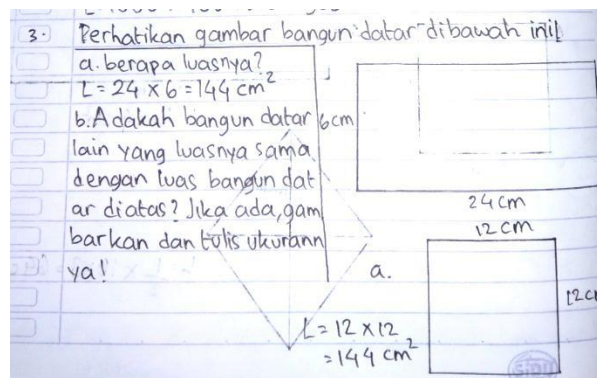 3. Perhatikan gambar bangun datar dibawah ini!
a. berapa luasnya?
L = 24 x 6 = 144 cm²
b. Adakah bangun datar
lain yang luasnya sama
dengan luas bangun dat
ar diatas? Jika ada, gam
barkan dan tulis ukurann
ya!
6 cm
24 cm
12 cm
a.
12 c
L = 12 x 12
= 144 cm²
SIDU